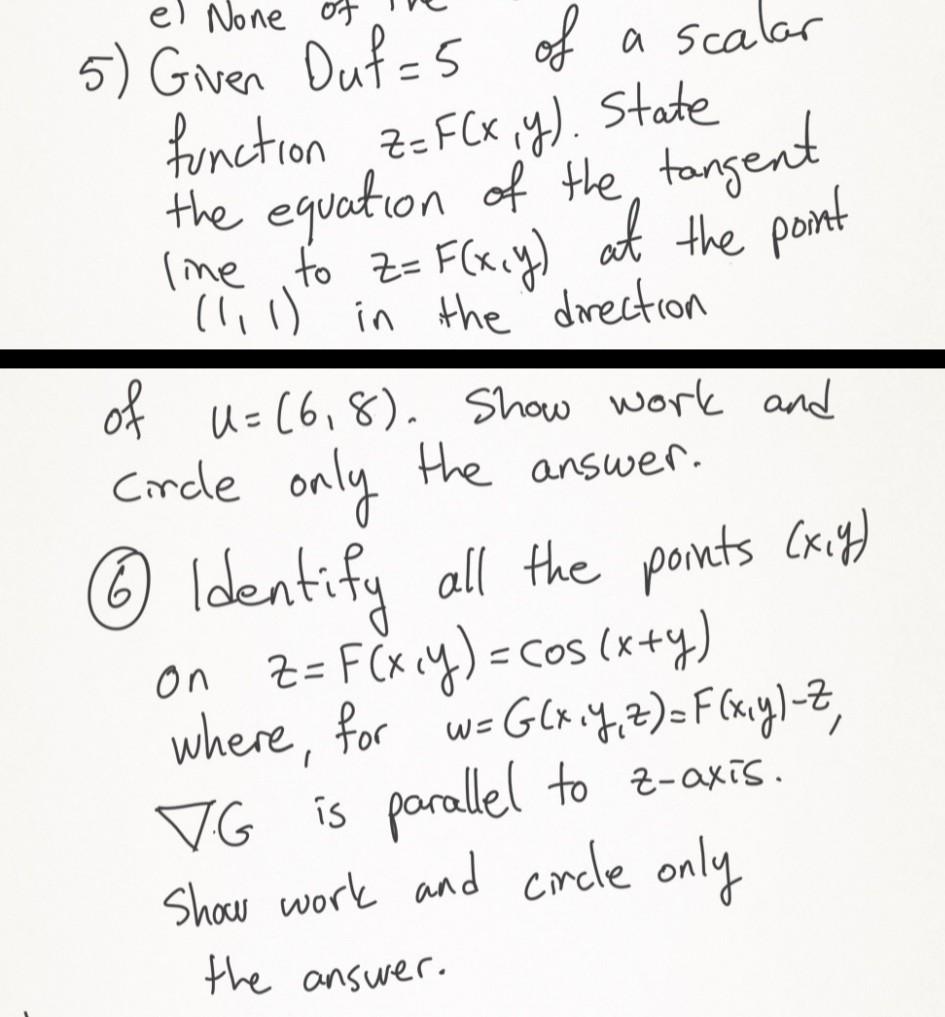 e) None of the
5) Given Duf = 5 of a scalar
function z=F(x,y). State
the equation of the tangent
line to z= F(x,y) at the point
(1,1) in the direction
of u=(6,8). Show work and
circle only the answer.
6 Identify all the points (x,y)
on z= F(x,y) = cos (x+y)
where, for w= G(x,y,z)=F(x,y)-z,
∇G is parallel to z-axis.
Show work and circle only
the answer.